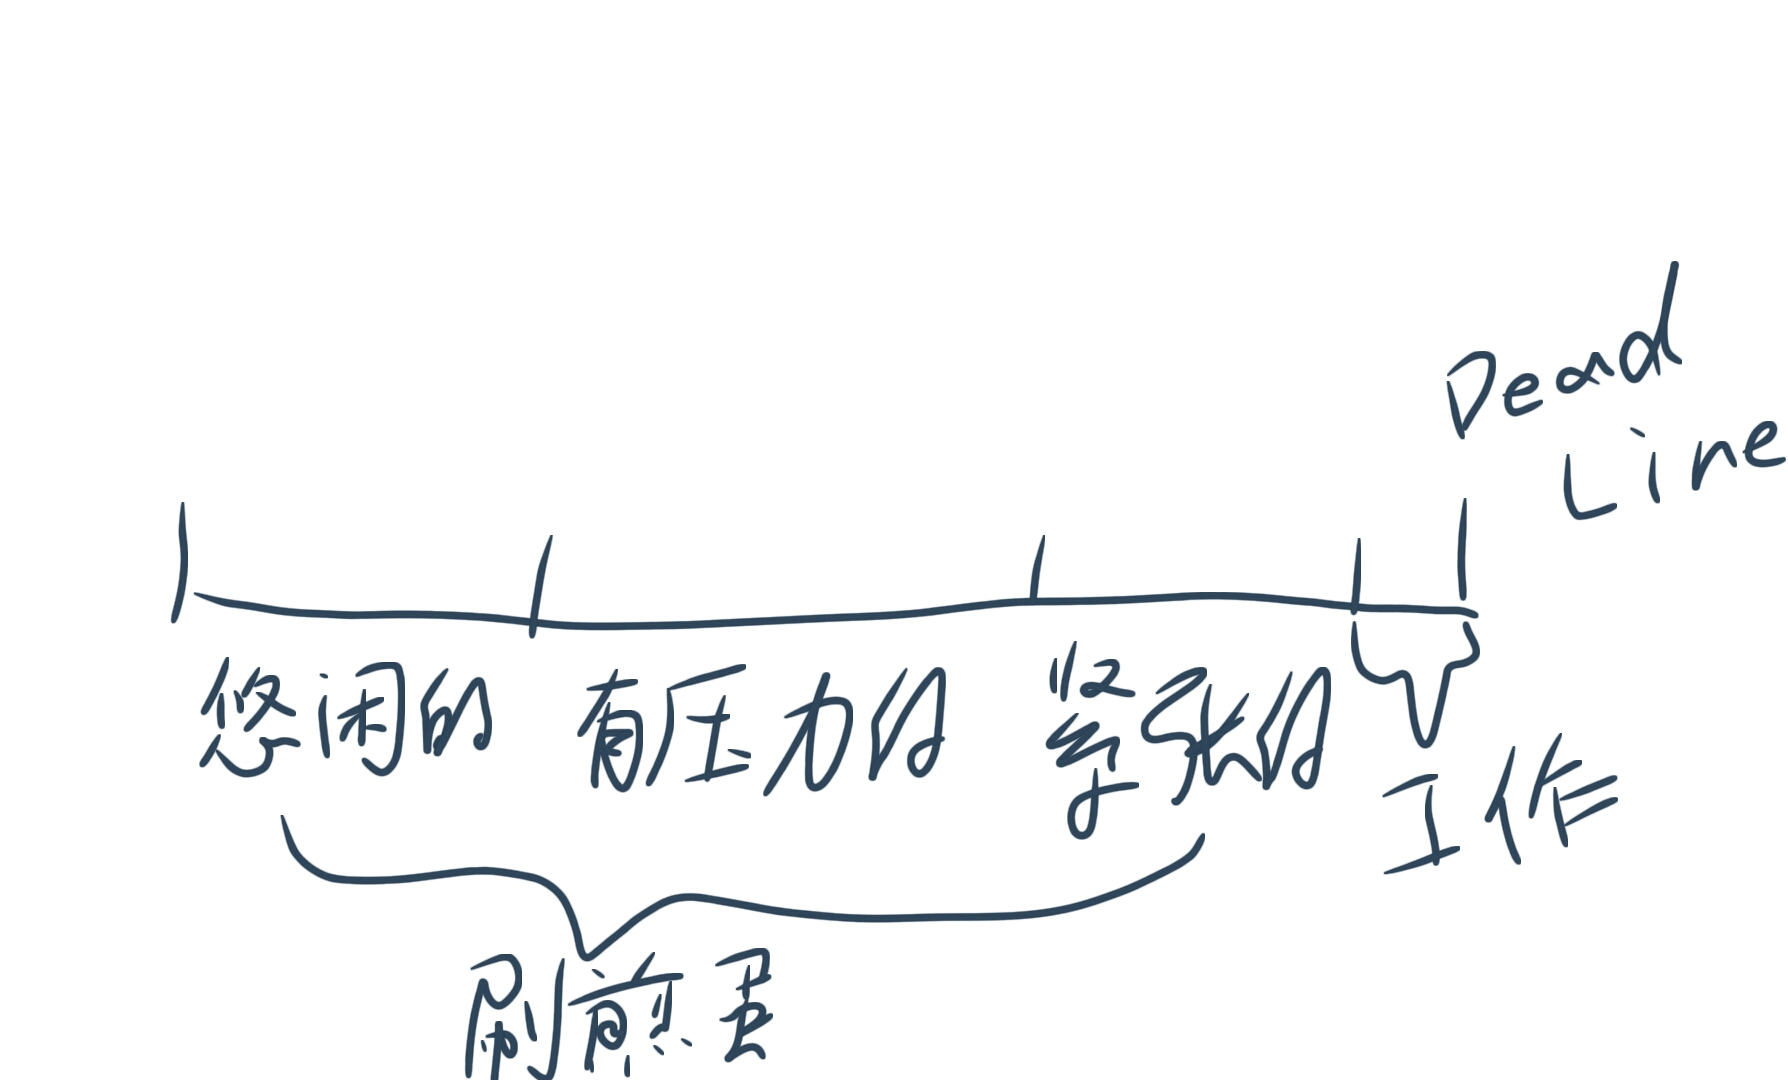 Dead
Line
悠闲的 有压力的 紧张的
工作
刷煎蛋